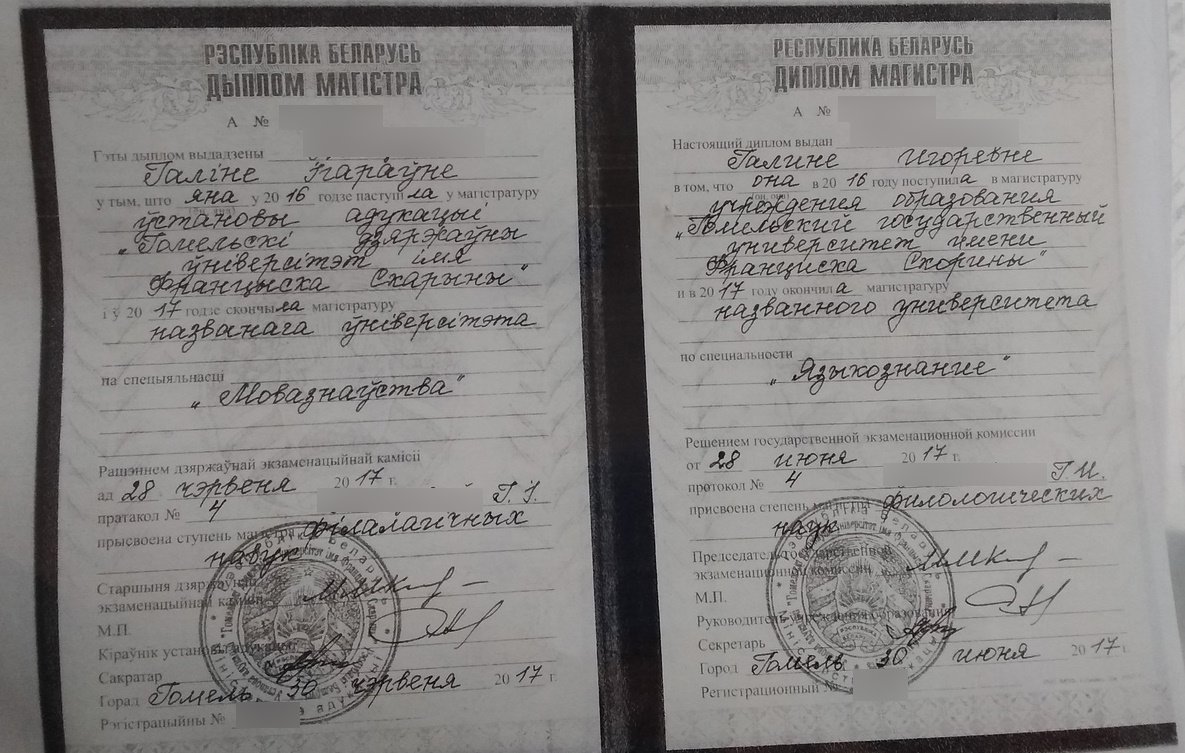 РЭСПУБЛІКА БЕЛАРУСЬ
ДЫПЛОМ МАГІСТРА
А №
Гэты дыплом выдадзены
Галіне Ігараўне
у тым, што яна у 2016 годзе паступіла у магістратуру
ўстановы адукацыі
„Гомельскі дзяржаўны
ўніверсітэт імя
Францыска Скарыны"
і ў 2017 годзе скончыла магістратуру
названага ўніверсітэта
па спецыяльнасці
„Мовазнаўства"
Рашэннем дзяржаўнай экзаменацыйнай камісіі
ад 28 чэрвеня 2017 г.
пратакол № 4 Г.І.
прысвоена ступень магістра філалагічных
навук
Старшыня дзяржаўнай
экзаменацыйнай камісіі
М.П.
Кіраўнік установы адукацыі
Сакратар
Горад Гомель 30 чэрвеня 2017 г.
Рэгістрацыйны №
РЕСПУБЛИКА БЕЛАРУСЬ
ДИПЛОМ МАГИСТРА
А №
Настоящий диплом выдан
Галине Игоревне
в том, что она в 2016 году поступила в магистратуру
учреждения образования
„Гомельский государственный
университет имени
Франциска Скорины"
и в 2017 году окончила магистратуру
названного университета
по специальности
„Языкознание"
Решением государственной экзаменационной комиссии
от 28 июня 2017 г.
протокол № 4 Г.И.
присвоена степень магистра филологических
наук
Председатель государственной
экзаменационной комиссии
М.П.
Руководитель учреждения образования
Секретарь
Город Гомель 30 июня 2017 г.
Регистрационный №